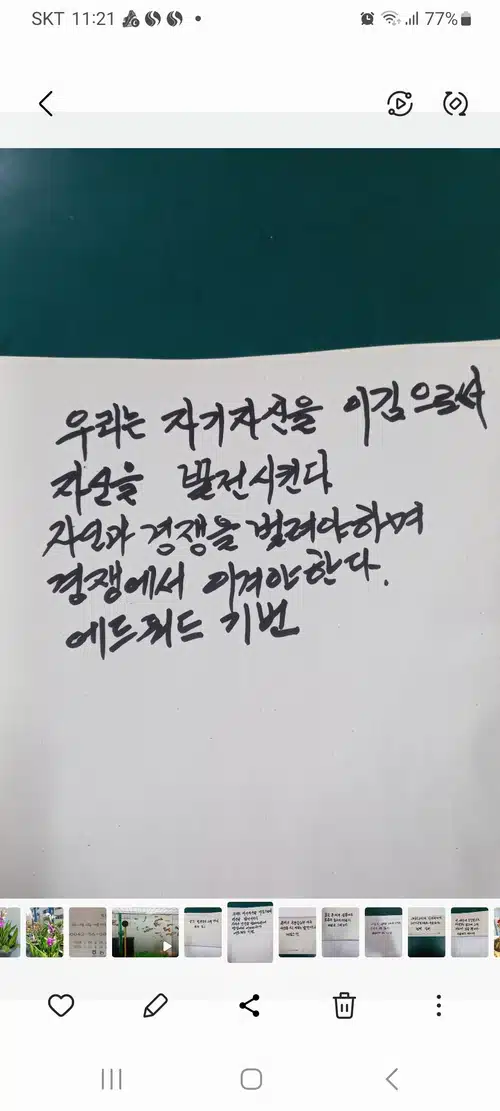 SKT 11:21 77%
우리는 자기자신을 이김으로써
자신을 발전시킨다
자신과 경쟁을 벌려야하며
경쟁에서 이겨야한다.
에드워드 기번